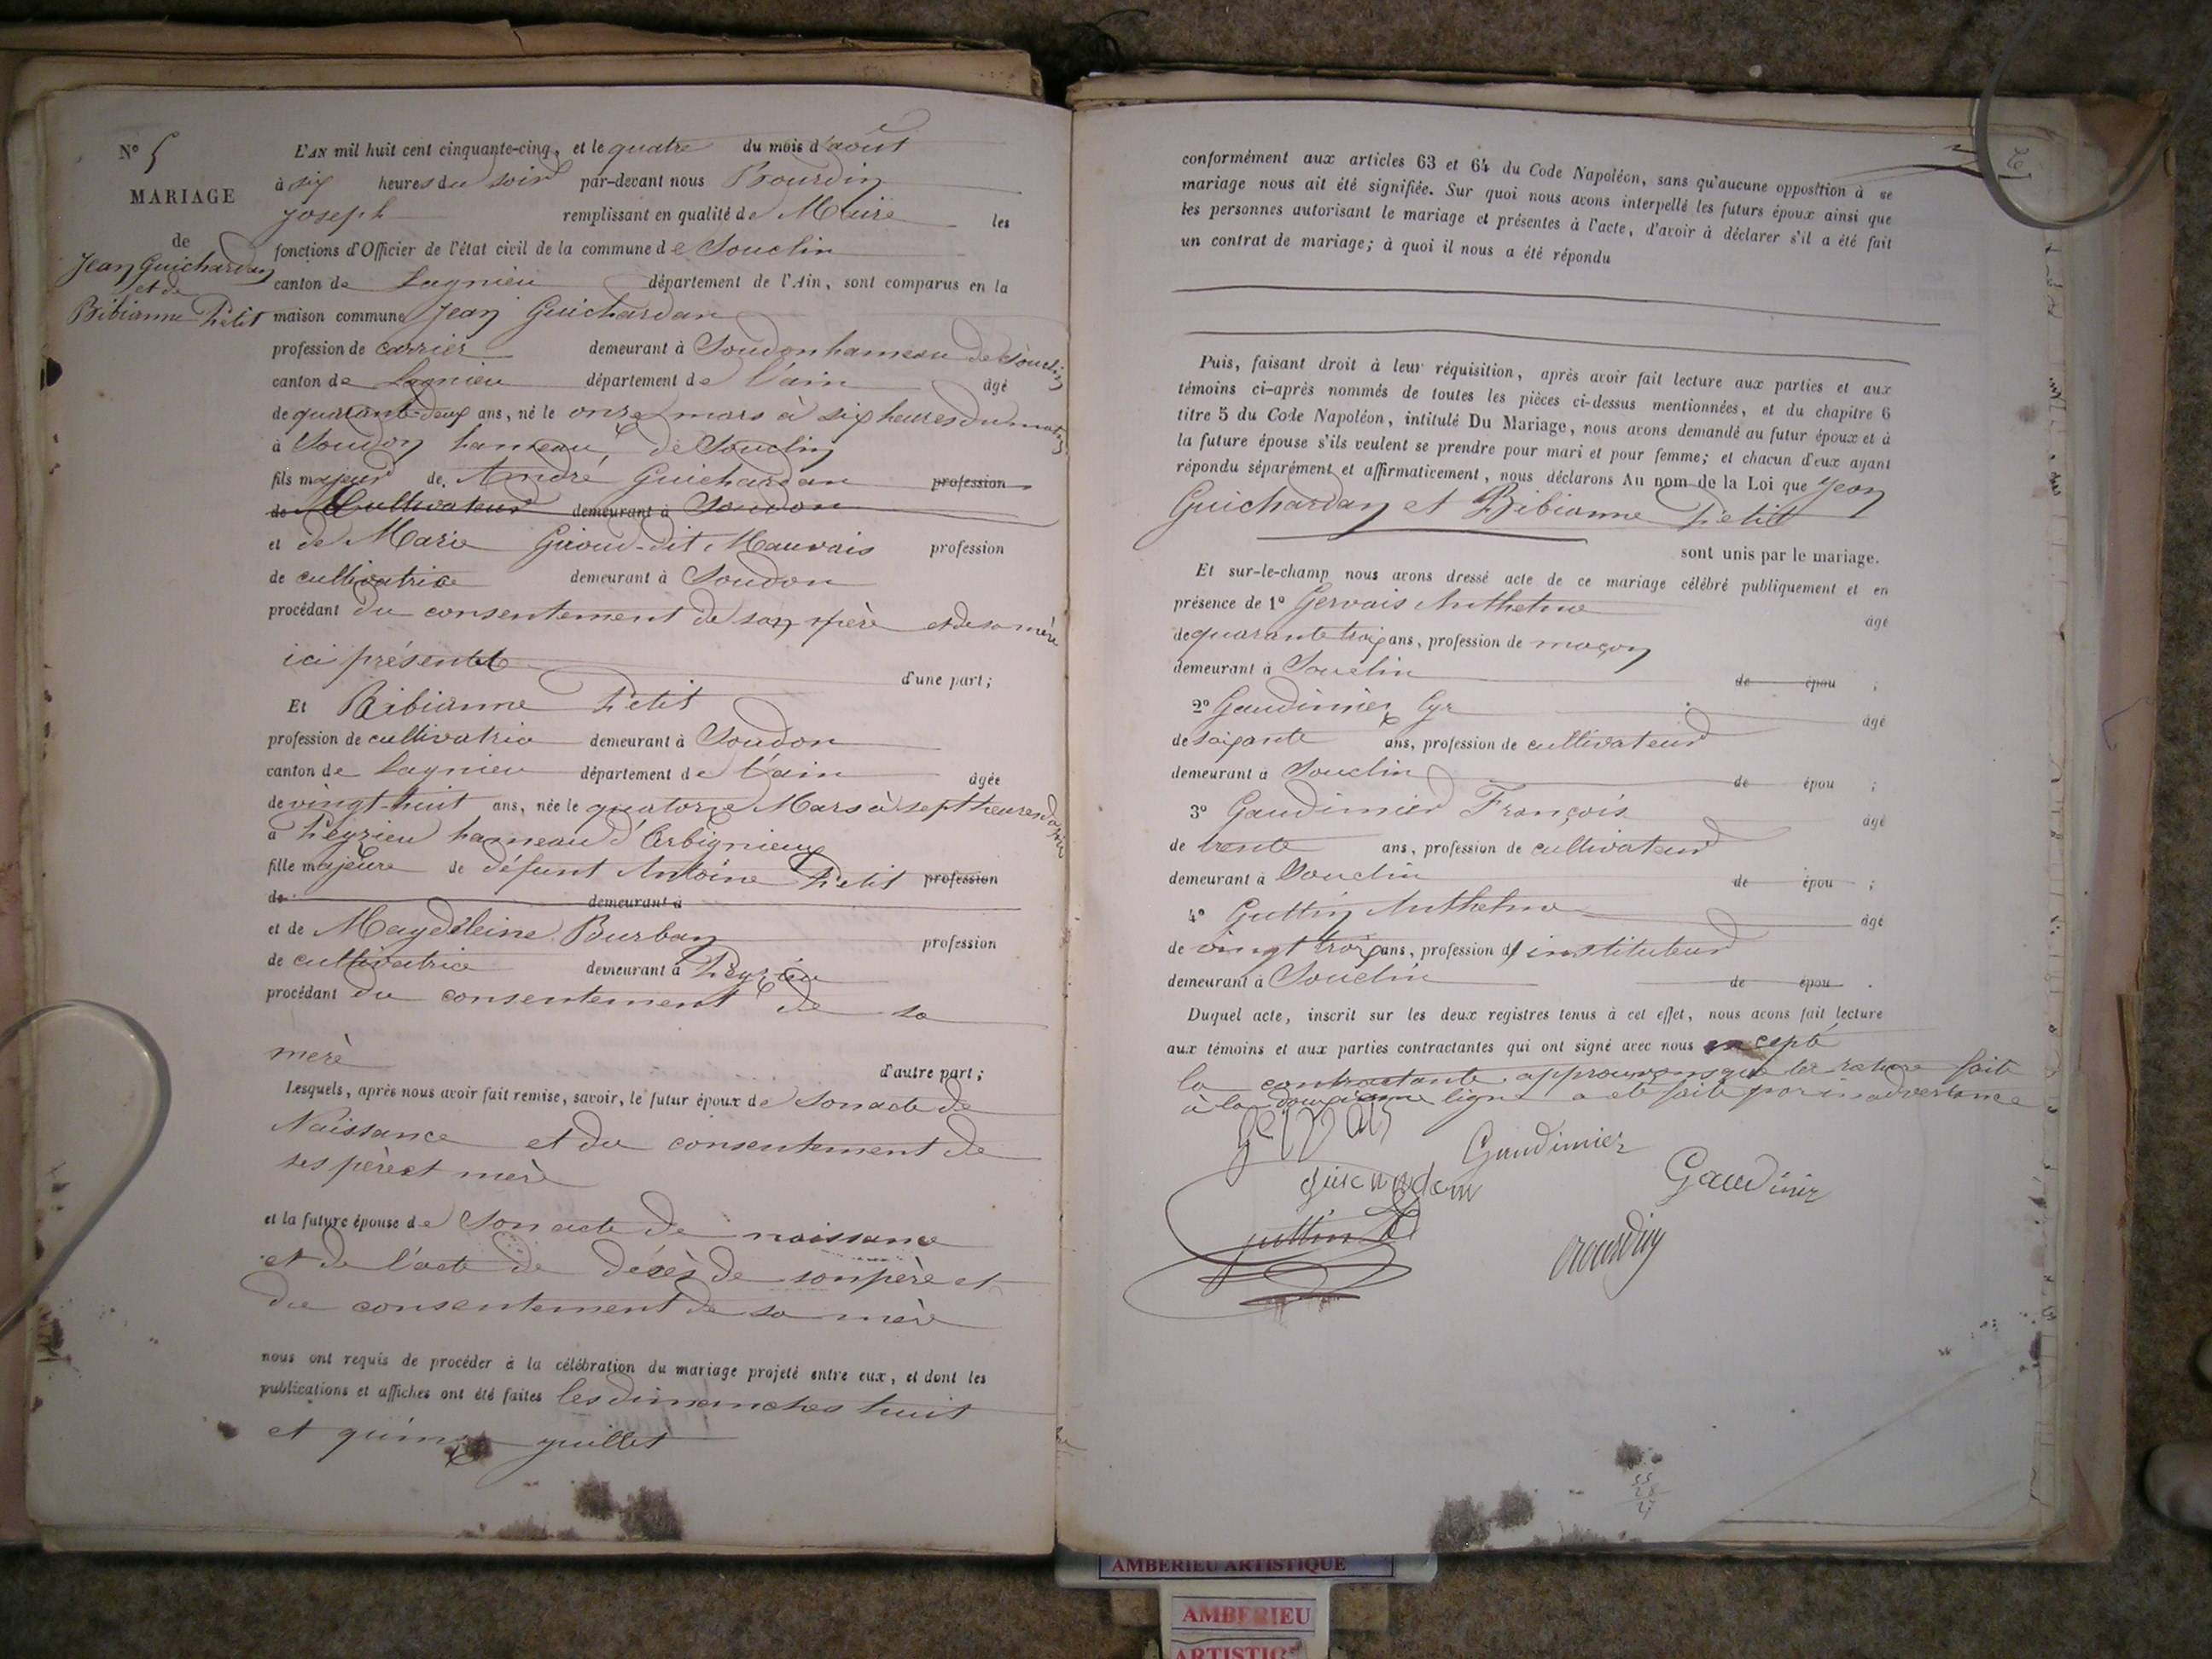 N° 5
MARIAGE
de
Jean Guichardan
et de
Bibianne Petit
L'AN mil huit cent cinquante-cinq, et le quatre du mois d'août
à six heures du soir par-devant nous Bourdin
Joseph remplissant en qualité de Maire les
fonctions d'Officier de l'état civil de la commune de Souclin
canton de Lagnieu département de l'Ain, sont comparus en la
maison commune Jean Guichardan
profession de carrier demeurant à Soudon hameau de Souclin
canton de Lagnieu département de l'ain âgé
de quarante-deux ans, né le onze mars à six heures du matin
à Soudon hameau de Souclin
fils majeur de André Guichardan profession
de Cultivateur demeurant à Soudon
et de Marie Giroud-dit Mauvais profession
de cultivatrice demeurant à Soudon
procédant du consentement de son père et de sa mère
ici présent
d'une part;
Et Bibianne Petit
profession de cultivatrice demeurant à Soudon
canton de Lagnieu département de l'ain âgée
de vingt-huit ans, née le quatorze Mars à sept heures du soir
à Peyzieu hameau d'Arbignieux
fille majeure de défunt Antoine Petit profession
de demeurant à
et de Magdeleine Burban profession
de cultivatrice demeurant à Peyzieu
procédant du consentement de sa
mère
d'autre part;
Lesquels, après nous avoir fait remise, savoir, le futur époux de Son acte de
Naissance et du consentement de
ses père et mère
et la future épouse de Son acte de naissance
et de l'acte de décès de son père et
du consentement de sa mère
nous ont requis de procéder à la célébration du mariage projeté entre eux, et dont les
publications et affiches ont été faites les dimanches huit
et quinze juillet
conformément aux articles 63 et 64 du Code Napoléon, sans qu'aucune opposition à se
mariage nous ait été signifiée. Sur quoi nous avons interpellé les futurs époux ainsi que
les personnes autorisant le mariage et présentes à l'acte, d'avoir à déclarer s'il a été fait
un contrat de mariage; à quoi il nous a été répondu
Puis, faisant droit à leur réquisition, après avoir fait lecture aux parties et aux
témoins ci-après nommés de toutes les pièces ci-dessus mentionnées, et du chapitre 6
titre 5 du Code Napoléon, intitulé Du Mariage, nous avons demandé au futur époux et à
la future épouse s'ils veulent se prendre pour mari et pour femme; et chacun d'eux ayant
répondu séparément et affirmativement, nous déclarons Au nom de la Loi que Jean
Guichardan et Bibianne Petit
sont unis par le mariage.
Et sur-le-champ nous avons dressé acte de ce mariage célébré publiquement et en
présence de 1° Gervais Anthelme âgé
de quarante trois ans, profession de maçon
demeurant à Souclin de épou ;
2° Gaudimier Cyr âgé
de soixante ans, profession de cultivateur
demeurant à Souclin de épou ;
3° Gaudimier François âgé
de trente ans, profession de cultivateur
demeurant à Souclin de épou ;
4° Guttin Anthelme âgé
de vingt trois ans, profession d'instituteur
demeurant à Souclin de épou .
Duquel acte, inscrit sur les deux registres tenus à cet effet, nous avons fait lecture
aux témoins et aux parties contractantes qui ont signé avec nous excepté
la contractante. approuvons que la rature faite
à la douzième ligne a été faite par inadvertance
gervais
Gaudimier
guichardan
Gaudimier
guttin A
Bourdin
55
28
27
AMBERIEU ARTISTIQUE
AMBERIEU
ARTISTIQ